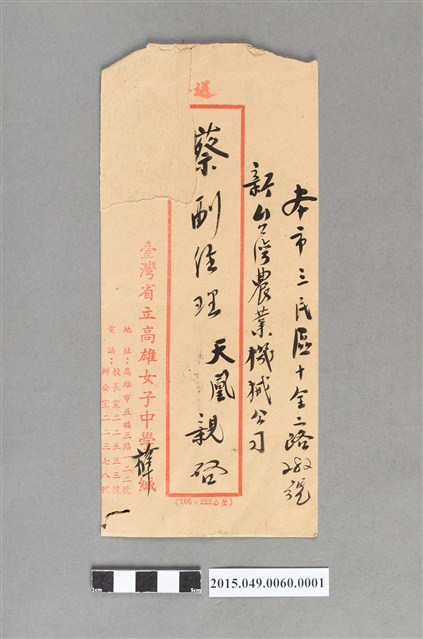 送
本市三民區十全二路
新台灣農業機械公司
蔡副經理天凰親啓
臺灣省立高雄女子中學 緘
地址：高雄市五福三路一二二號
電話：校長室二二五三三號
辦公室二二三七八號
(105×222公厘)
1cm
5cm
2015.049.0060.0001